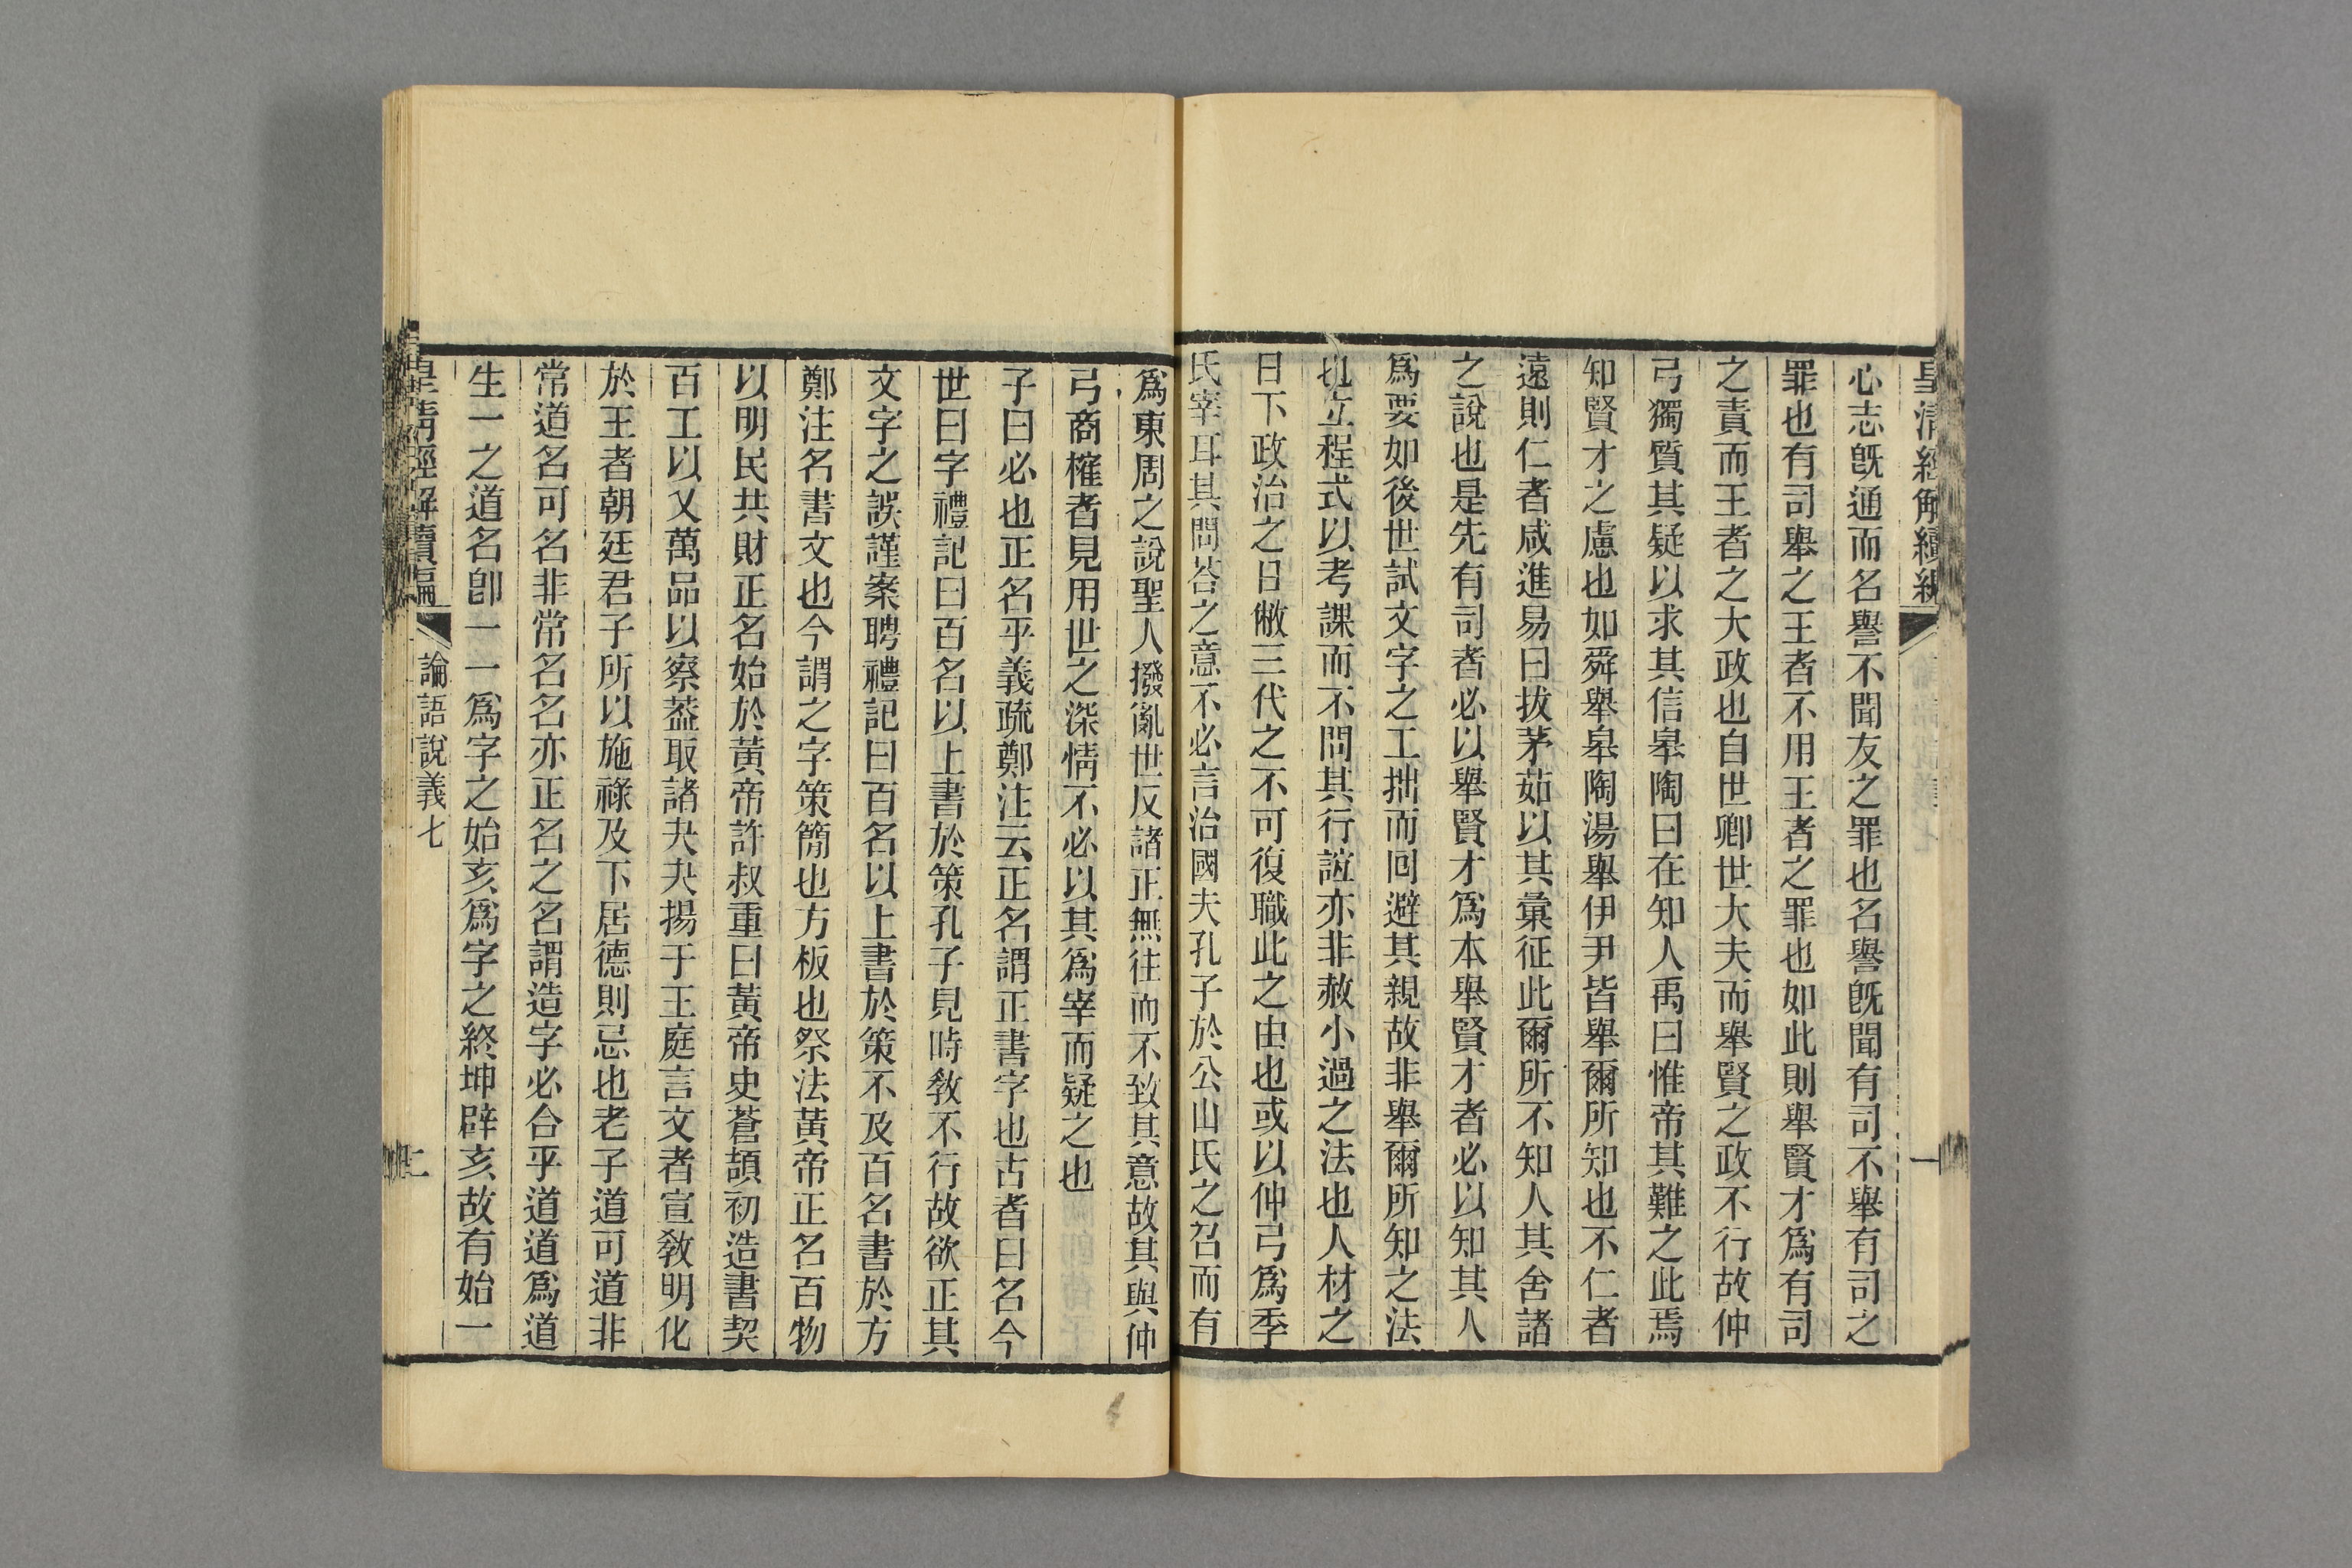 皇清經解續編
一
心志旣通而名譽不聞友之罪也名譽旣聞有司不舉有司之
罪也有司舉之王者不用王者之罪也如此則舉賢才爲有司
之責而王者之大政也自世卿世大夫而舉賢之政不行故仲
弓獨質其疑以求其信皋陶曰在知人禹曰惟帝其難之此焉
知賢才之慮也如舜舉皋陶湯舉伊尹皆舉爾所知也不仁者
遠則仁者咸進易曰拔茅茹以其彙征此爾所不知人其舍諸
之說也是先有司者必以舉賢才爲本舉賢才者必以知其人
爲要如後世試文字之工拙而回避其親故非舉爾所知之法
也立程式以考課而不問其行誼亦非赦小過之法也人材之
日下政治之日敝三代之不可復職此之由也或以仲弓爲季
氏宰耳其問荅之意不必言治國夫孔子於公山氏之召而有
爲東周之說聖人撥亂世反諸正無往而不致其意故其與仲
弓商榷者見用世之深情不必以其爲宰而疑之也
子曰必也正名乎義疏鄭注云正名謂正書字也古者曰名今
世曰字禮記曰百名以上書於策孔子見時敎不行故欲正其
文字之誤謹案聘禮記曰百名以上書於策不及百名書於方
鄭注名書文也今謂之字策簡也方板也祭法黃帝正名百物
以明民共財正名始於黃帝許叔重曰黃帝史蒼頡初造書契
百工以乂萬品以察葢取諸夬夬揚于王庭言文者宣敎明化
於王者朝廷君子所以施祿及下居德則忌也老子道可道非
常道名可名非常名名亦正名之名謂造字必合乎道道爲道
生一之道名卽一一爲字之始亥爲字之終坤辟亥故有始一
皇清經解續編
論語說義七
二